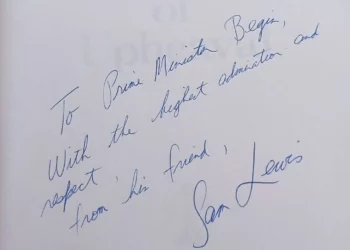 To Prime Minister Begin,
With the highest admiration and
respect, from his friend,
Sam Lewis